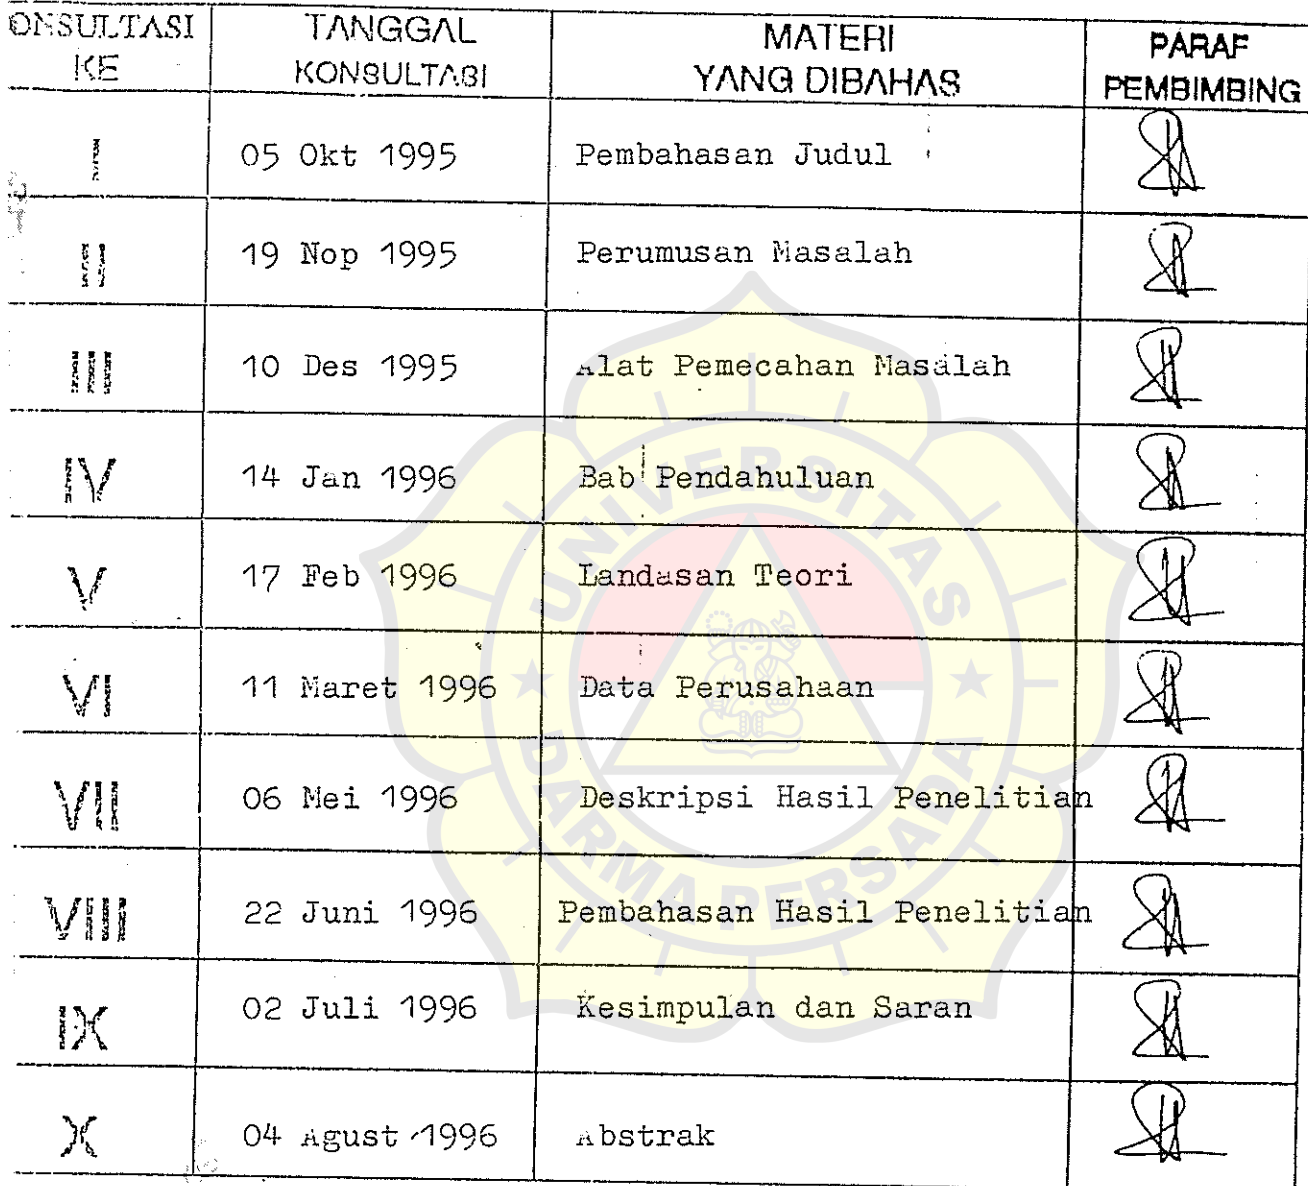 ONSULTASI KE TANGGAL KONSULTASI MATERI YANG DIBAHAS PARAF PEMBIMBING
I 05 Okt 1995 Pembahasan Judul
II 19 Nop 1995 Perumusan Masalah
III 10 Des 1995 Alat Pemecahan Masalah
IV 14 Jan 1996 Bab Pendahuluan
V 17 Feb 1996 Landasan Teori
VI 11 Maret 1996 Data Perusahaan
VII 06 Mei 1996 Deskripsi Hasil Penelitian
VIII 22 Juni 1996 Pembahasan Hasil Penelitian
IX 02 Juli 1996 Kesimpulan dan Saran
X 04 Agust 1996 Abstrak
UNIVERSITAS
DARMA PERSADA